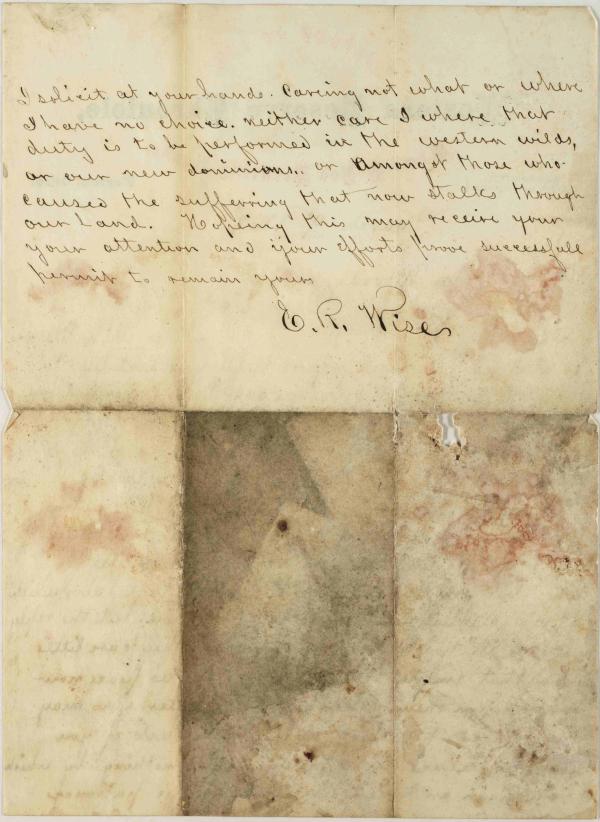 I solicit at your hands. Careing not what or where
I have no choice. Neither care I where that
duty is to be performed in the western wilds,
or our new dominions.. or amongst those who
caused the sufferring that now stalks through
our Land. Hopeing this may receive your
your attention and your efforts prove successfull
permit to remain yours
E. R. Wise